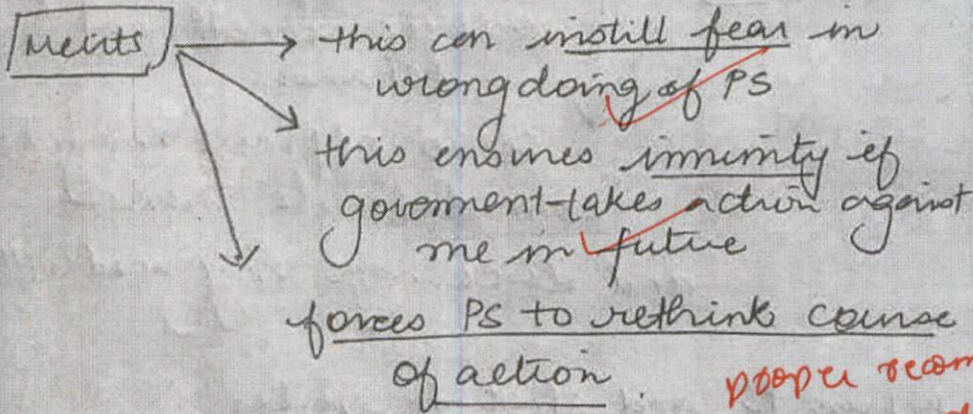 Merits
this can instill fear in
wrong doing of PS
this ensures immunity if
government takes action against
me in future
forces PS to rethink course
of action.
proper recom